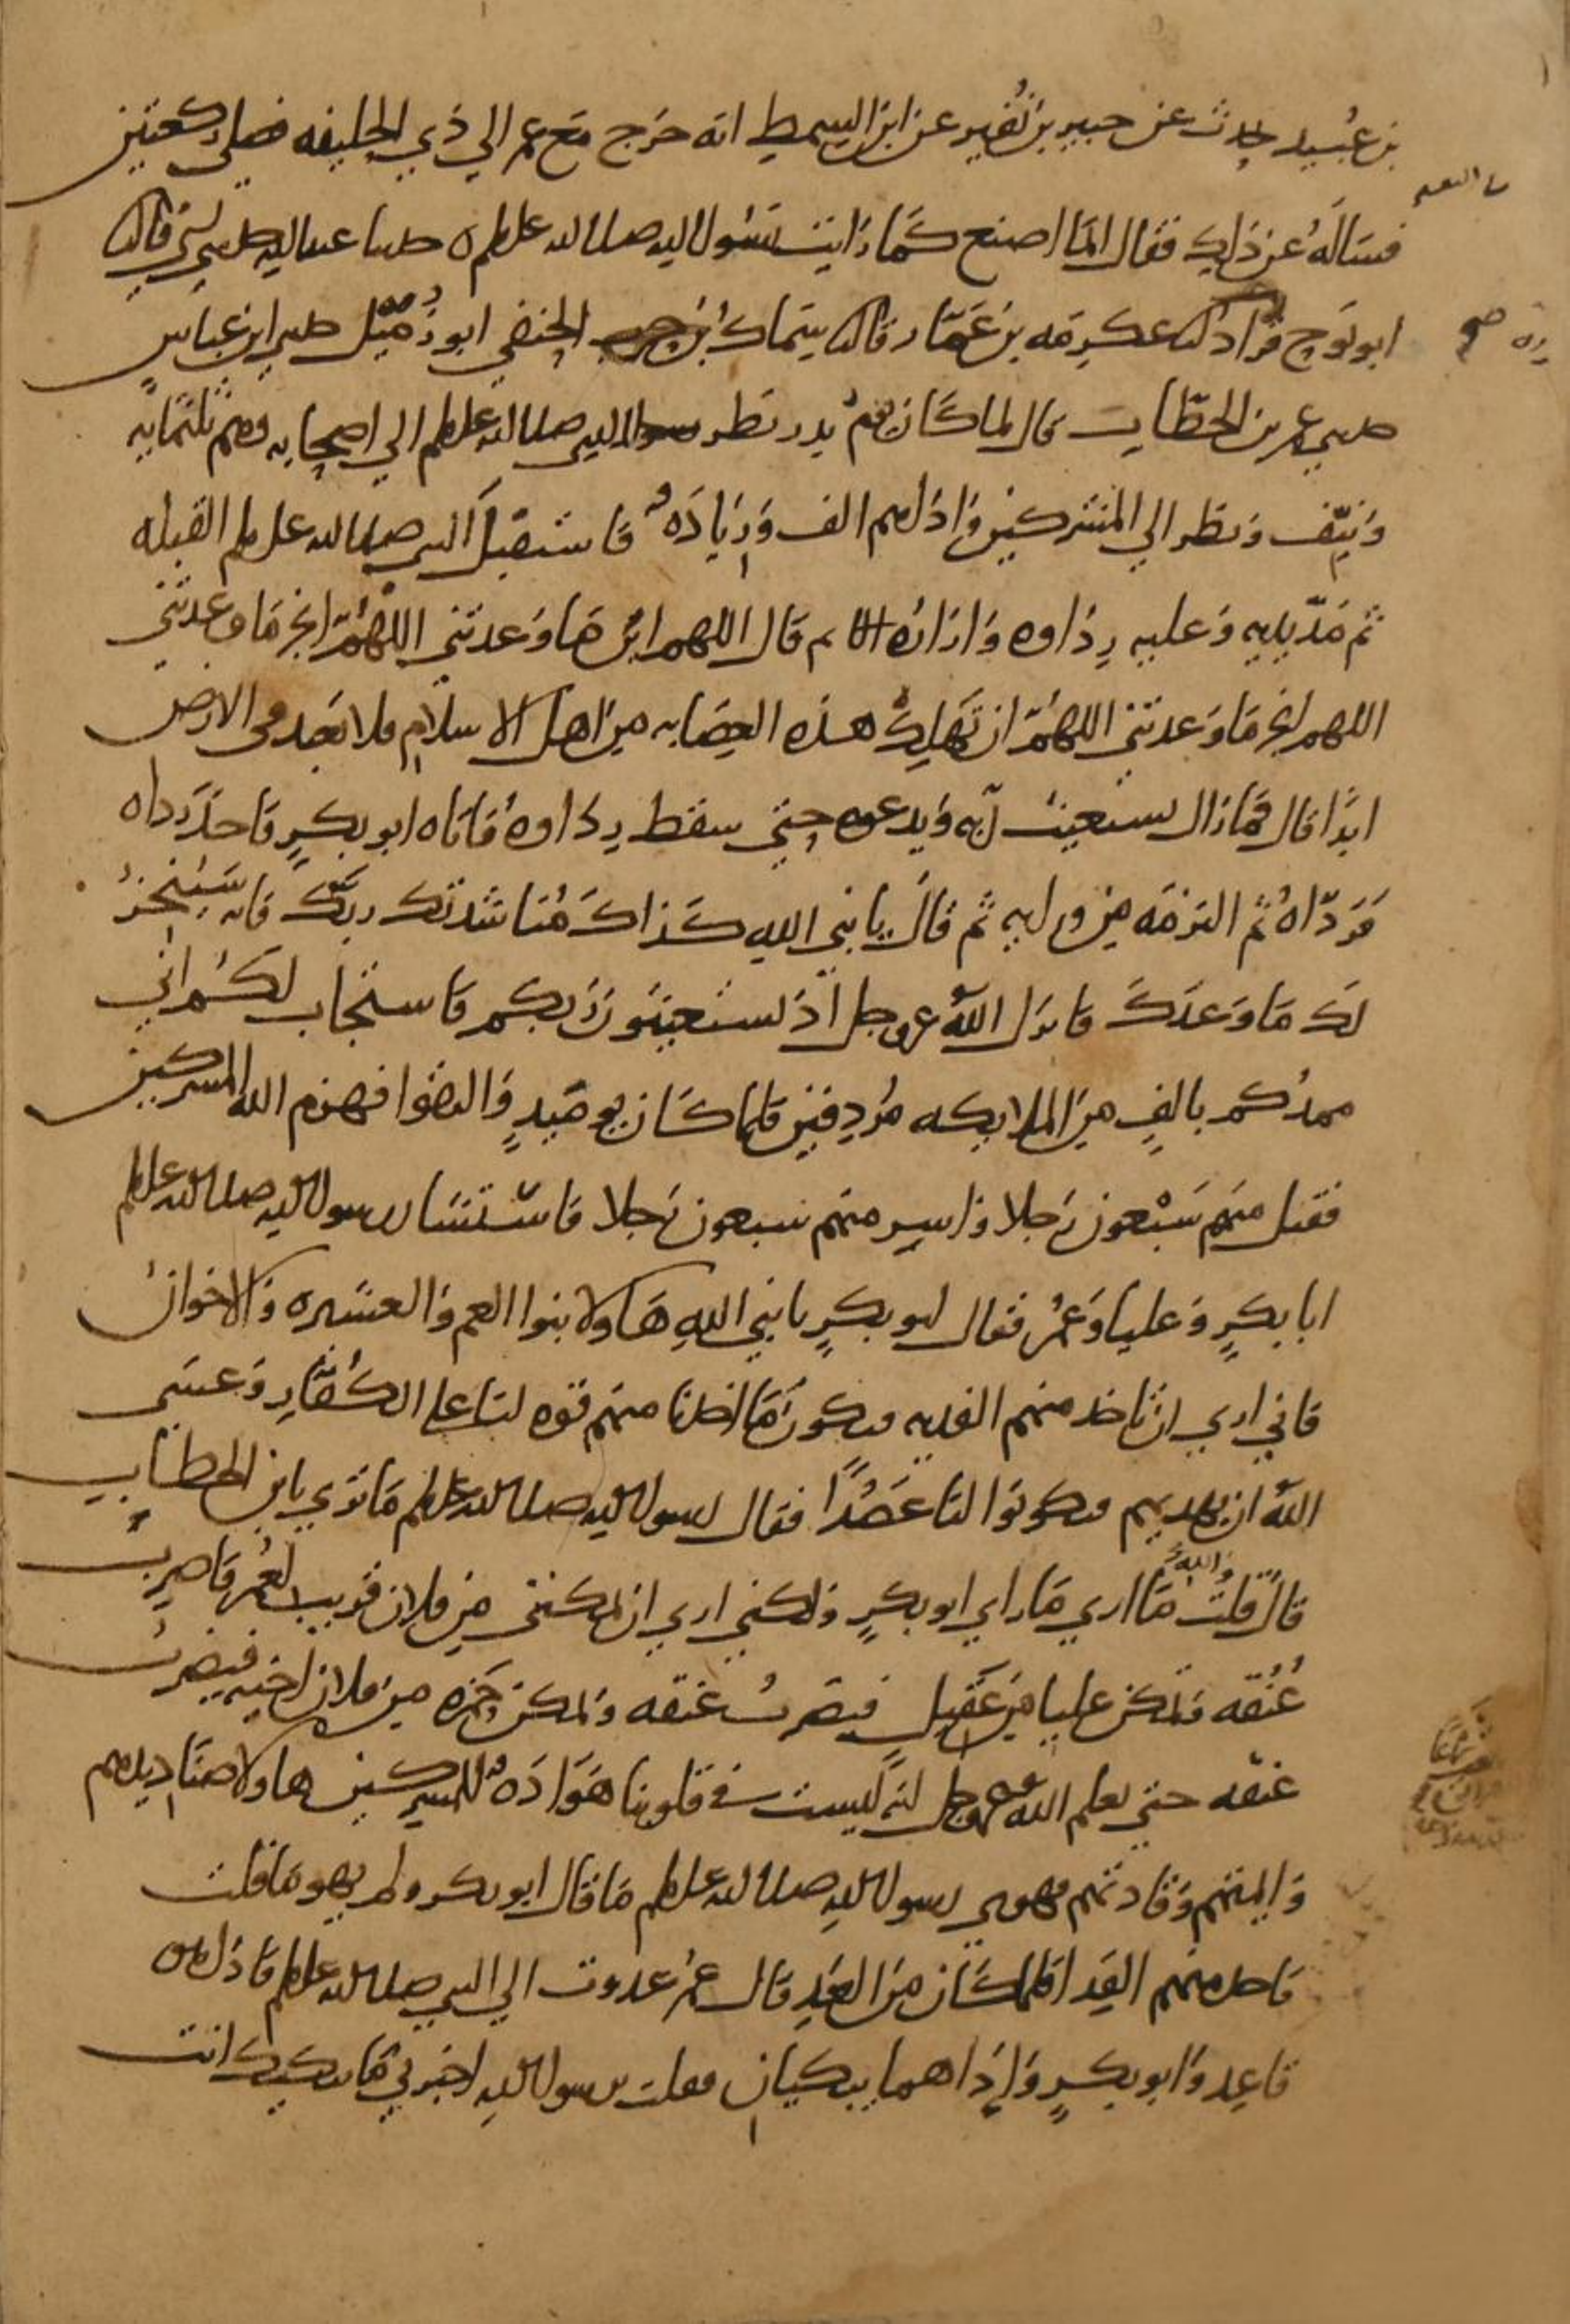 بن عُبيد يحدث عن جبير بن نُفير عن ابن السمط انه خرج مع عمر الي ذي الحليفه فصلي ركعتين
فسَالَهُ عن ذلك فقال انما اصنع كَمَا رَايت رَسُول الله صلى الله علىه وسلم ه حدثنا عبد الله حدثني ابي قال ثنا
ابو نوح قُرَاد ثنا عكرمه بن عَمّار ثنا سِمَاك الحنفي ابو زُمَيْل حدثني ابن عباس
حدثني عمر بن الخطاب قال لما كَان يَومُ بدر نظر النبي صلى الله علىه وسلم الي اصحابه وهم ثلثمايه
وَنيّف وَنظر الي المشركين فَاذا هم الف وَزِيَادَه فَاستقبَل النبي صلى الله علىه وسلم القبله
ثم مَدّ يديه وَعليه رِدَاوه وَازَارُه ثم قَال اللهم اين مَا وَعدتني اللهُمّ انجز مَا وَعدتَني
اللهم انجز مَا وَعدتني اللهُمّ ان تَهلِكْ هذه العِصَابه مِن اهل الاسلام فلا تعبَد في الارض
ابدًا قال فمَا زال يستغيث رَبه وَيدعوه حتي سقط رِدَاوه فاتاه ابو بكرٍ فاخذ رداه
فردّاهُ ثم التزمَه مِن ورايه ثم قَال يا نبي الله كَذاكَ مُنَاشدتك ربَّك فانه سَيُنْجزُ
لَك مَا وَعدَكَ فانزل اللهُ عز وجل اذ تستغيثون رَبكم فاستجاب لكُم اني
ممدُكم بالفٍ مِن الملايكه مُردِفين فلما كَان يوميذٍ وَالتقوا فهزم الله المشركين
فقتل منهم سَبْعون رَجلا وَاسِر منهم سبعون رَجلا فاسْتشَار رسول الله صلى الله علىه وسلم
ابا بكرٍ وَعليا وَعُمر فقال ابو بكرٍ يا نبي اللهِ هَاولا بنوا العم وَالعشيره وَالاخوانُ
فاني اري ان تاخذ منهم الفديه فيكونُ مَا اخذنا منهم قوه لنا على الكُفّارِ وَعسَى
اللهُ ان يهديهم فيكونوا لنا عَضُدًا فقال رسول الله صلى الله علىه وسلم مَا تري يا بن الخطاب
قال قلت وَاللهِ مَا اري مَا راي ابو بكرٍ وَلكني اري ان تمكنني مِن فلان قريب لعُمر فاضرِبَ
عُنُقه وَتمكن عليا مِن عَقيل فيضربُ عنقه وَتمكن حَمزه مِن فلان اخيه فيضربُ
عنقه حتي يعلم اللهُ عز وجل انه ليست في قلوبنا هَوَادَه للمشركين هاولا صنَاديدهم
وَايمتهم وَقَادتهم فهوي رسول اللهِ صلى الله علىه وسلم مَا قال ابو بكر ولم يهو مَا قلت
فاخذ منهم الفِدا فلما كَان مِن الغَدِ قال عمرُ غدوت الي النبي صلى الله علىه وسلم فاذا هو
قاعِد وَابو بكرٍ وَاِذا هما يبكيان فقلت يرسول الله اخبرني مَا يبكيك انت